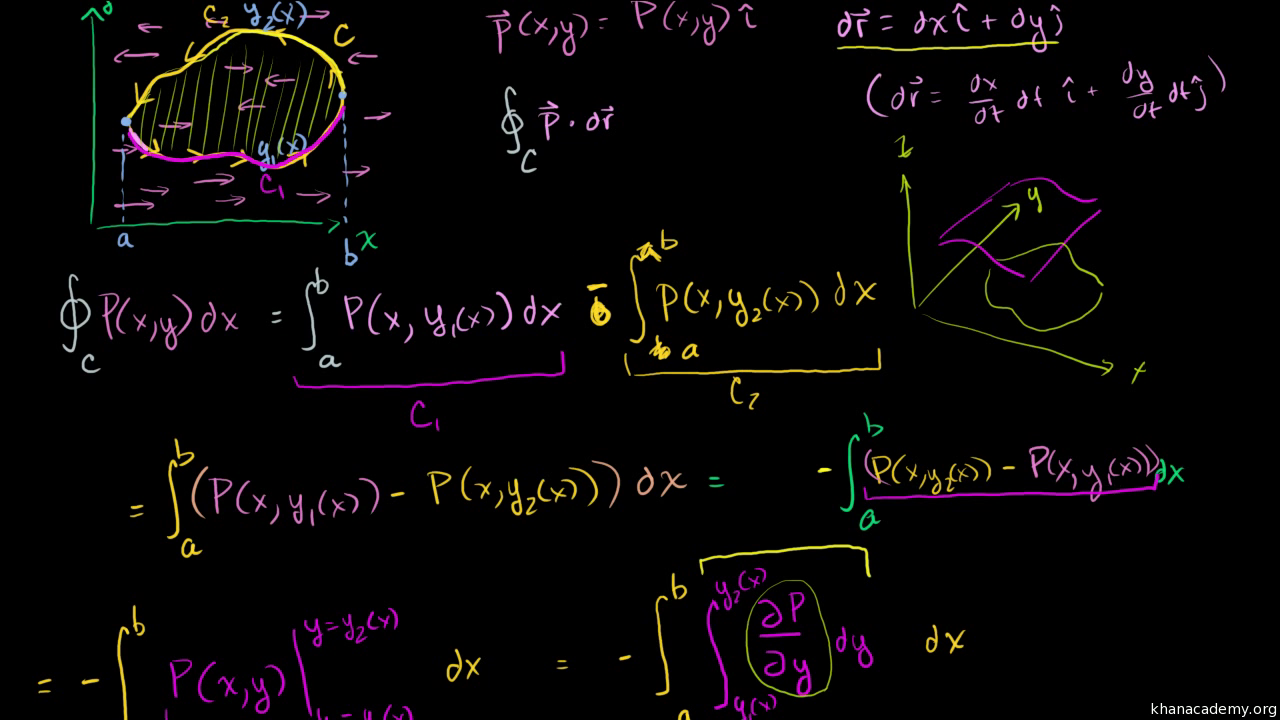 C₂ y₂(x)
C
y₁(x)
C₁
a
b
x
P⃗(x,y) = P(x,y) î
∮_C P⃗ · dr⃗
dr⃗ = dx î + dy ĵ
(dr⃗ = dx/dt dt î + dy/dt dt ĵ)
z
y
x
∮_C P(x,y) dx = ∫_a^b P(x, y₁(x)) dx - ∫_a^b P(x, y₂(x)) dx
C₁
C₂
= ∫_a^b (P(x, y₁(x)) - P(x, y₂(x))) dx = - ∫_a^b (P(x, y₂(x)) - P(x, y₁(x))) dx
= - ∫^b P(x,y) |^{y = y₂(x)} dx = - ∫_a^b ∫_{y₁(x)}^{y₂(x)} ∂P/∂y dy dx
khanacademy.org